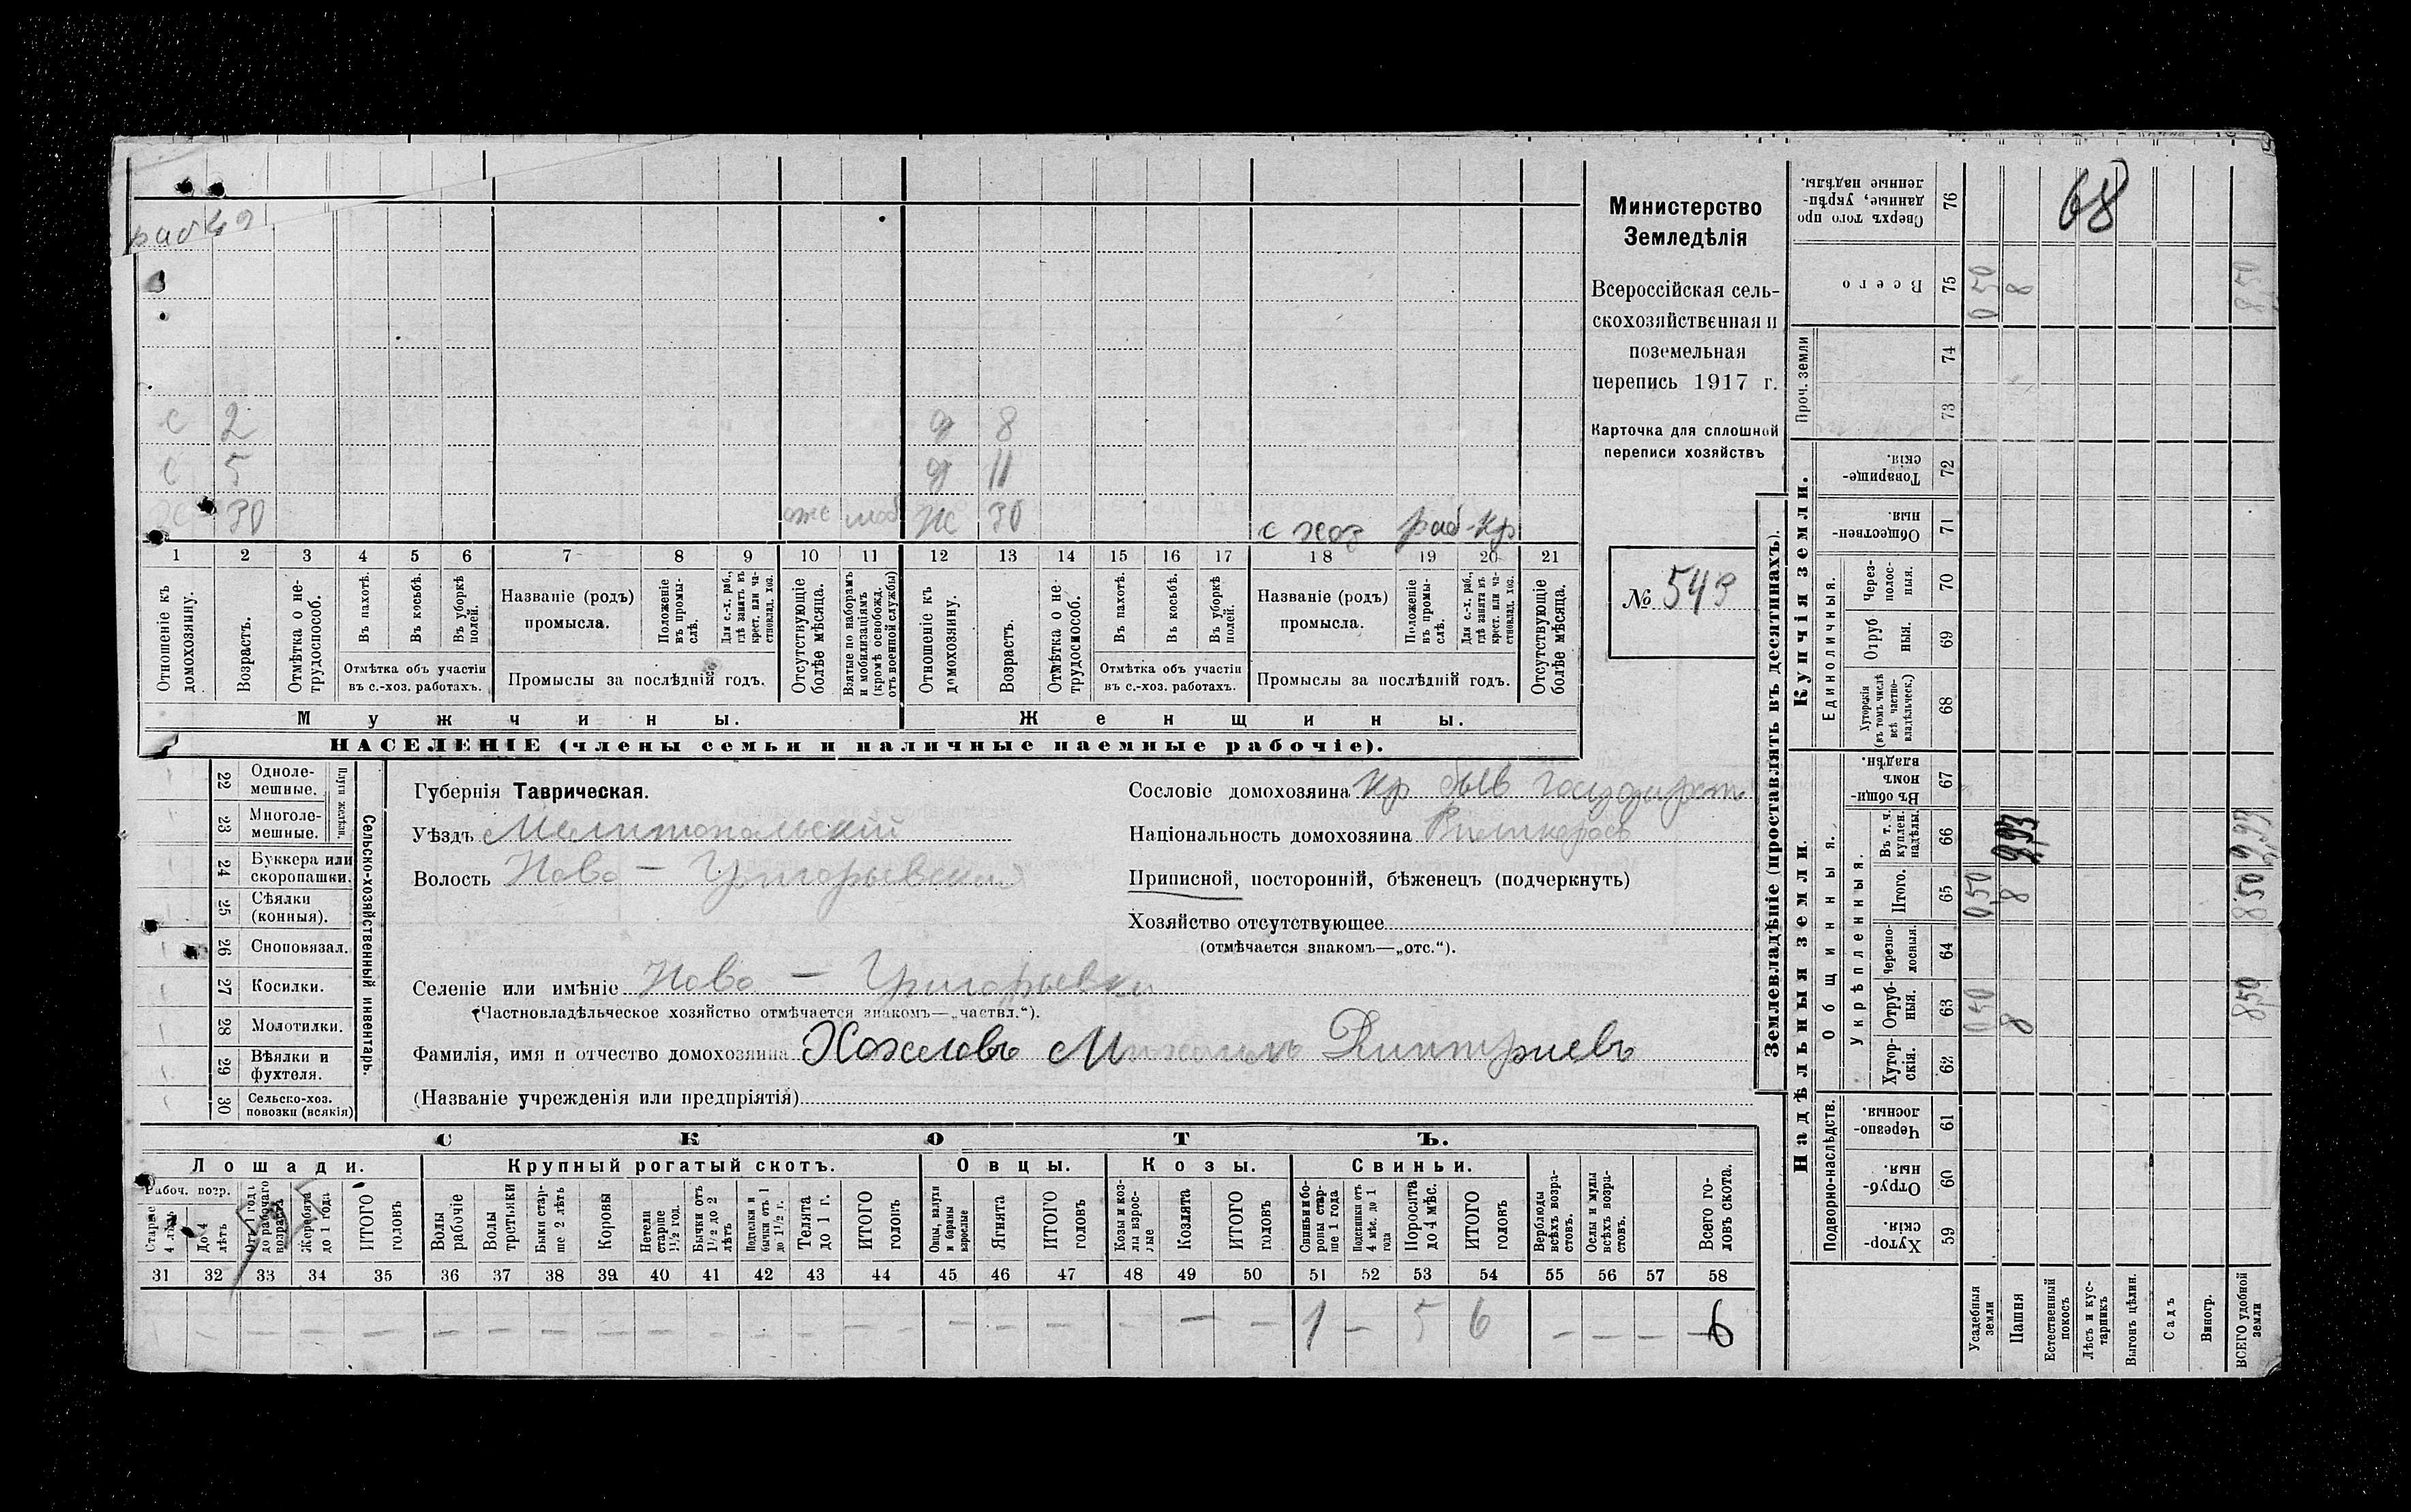 раб
с 2 д 8
с 5 д 11
30 отс моб ж 30 с хоз раб кр
1 2 3 4 5 6 7 8 9 10 11 12 13 14 15 16 17 18 19 20 21
Отношеніе къ домохозяину.
Возрастъ.
Отмѣтка о не-трудоспособ.
Въ пахотѣ.
Въ косьбѣ.
Въ уборкѣ полей.
Отмѣтка объ участіи въ с.-хоз. работахъ.
Названіе (родъ) промысла.
Положеніе въ промы-слѣ.
Для с.-х. раб., гдѣ занятъ въ крест. или ча-стновлад. хоз.
Промыслы за послѣдній годъ.
Отсутствующіе болѣе мѣсяца.
Взятые по наборамъ и мобилизаціямъ (кромѣ освобожд. отъ военной службы)
Отношеніе къ домохозяину.
Возрастъ.
Отмѣтка о не-трудоспособ.
Въ пахотѣ.
Въ косьбѣ.
Въ уборкѣ полей.
Отмѣтка объ участіи въ с.-хоз. работахъ.
Названіе (родъ) промысла.
Положеніе въ промы-слѣ.
Для с.-х. раб., гдѣ занята въ крест. или ча-стновлад. хоз.
Промыслы за послѣдній годъ.
Отсутствующіе болѣе мѣсяца.
Мужчины. Женщины.
НАСЕЛЕНІЕ (члены семьи и наличные наемные рабочіе).
Министерство
Земледѣлія
Всероссійская сель-
скохозяйственная и
поземельная
перепись 1917 г.
Карточка для сплошной
переписи хозяйствъ
№ 543
22 Одноле-мешные.
23 Многоле-мешные.
Плуги желѣзн.
24 Буккера или скоропашки.
25 Сѣялки (конныя).
26 Сноповязал.
27 Косилки.
28 Молотилки.
29 Вѣялки и фухтеля.
30 Сельско-хоз. повозки (всякія)
Сельско-хозяйственный инвентарь.
Губернія Таврическая.
Уѣздъ Мелитопольскій
Волость Ново - Григорьевская
Селеніе или имѣніе Ново - Григорьевка
(Частновладѣльческое хозяйство отмѣчается знакомъ—„частвл.“).
Фамилія, имя и отчество домохозяина Хохловъ Михаилъ Дмитриевъ
(Названіе учрежденія или предпріятія)
Сословіе домохозяина Кр быв государст
Національность домохозяина Великоросъ
Приписной, посторонній, бѣженецъ (подчеркнуть)
Хозяйство отсутствующее
(отмѣчается знакомъ—„отс.“).
СКОТЪ.
Лошади. Крупный рогатый скотъ. Овцы. Козы. Свиньи.
Рабоч. возр.
Старше 4 лѣтъ
До 4 лѣтъ
Отъ 1 года до рабочаго возраста
Жеребята до 1 года
ИТОГО головъ
Волы рабочіе
Волы третьяки
Быки стар-ше 2 лѣтъ
Коровы
Нетели старше 1 1/2 год.
Бычки отъ 1 1/2 до 2 лѣтъ
Подтелки и бычки отъ 1 до 1 1/2 г.
Телята до 1 г.
ИТОГО головъ
Овцы, валухи и бараны взрослые
Ягнята
ИТОГО головъ
Козы и коз-лы взрос-лые
Козлята
ИТОГО головъ
Свиньи и бо-ровы стар-ше 1 года
Подсвинки отъ 4 мѣс. до 1 года
Поросята до 4 мѣс.
ИТОГО головъ
Верблюды всѣхъ возра-стовъ.
Ослы и мулы всѣхъ возра-стовъ.
Всего го-ловъ скота.
31 32 33 34 35 36 37 38 39 40 41 42 43 44 45 46 47 48 49 50 51 52 53 54 55 56 57 58
— — — — — — — — — — — — — — — — — — 1 — 5 6 — — — 6
Землевладѣніе (проставлять въ десятинахъ).
Надѣльныя земли. Купчія земли.
Подворно-наслѣдств.
Общинныя.
Укрѣпленныя.
Единоличныя.
Проч. земли
Сверхъ того про-данные, укрѣп-ленные надѣлы. 76
Всего 75
74
73
Товарище-скія. 72
Обществен-ныя. 71
Через-полос-ныя. 70
Отруб-ныя. 69
Хуторскія (въ томъ числѣ всѣ частно-владѣльческ.) 68
Въ общин-номъ владѣн. 67
Въ т. ч. куплен. надѣлы. 66
Итого. 65
Черезпо-лосныя. 64
Отруб-ныя. 63
Хутор-скія. 62
Черезпо-лосныя. 61
Отруб-ныя. 60
Хутор-скія. 59
Усадебныя земли
Пашня
Естественный покосъ
Лѣсъ и кус-тарникъ
Выгонъ цѣлин.
Садъ
Виногр.
ВСЕГО удобной земли
68
050 8 850
050 8 850
8 850